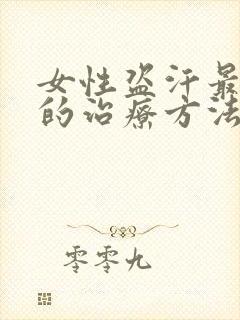 女性盗汗最
的治療方法
零零九